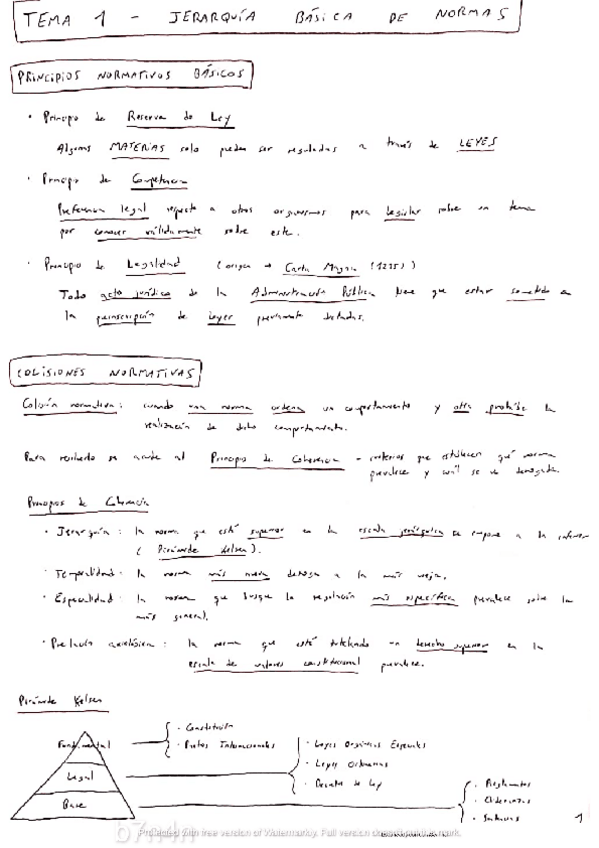 TEMA 1 - JERARQUÍA BÁSICA DE NORMAS
PRINCIPIOS NORMATIVOS BÁSICOS
· Principio de Reserva de Ley
Algunas MATERIAS solo pueden ser reguladas a través de LEYES
· Principio de Competencia
Preferencia legal respecto a otros organismos para legislar sobre un tema
por conocer válidamente sobre este.
· Principio de Legalidad (origen → Carta Magna (1215))
Todo acto jurídico de la Administración Pública tiene que estar sometido a
la de leyes previamente dictadas.
COLISIONES NORMATIVAS
Colisión normativa: cuando una norma ordena un comportamiento y otra prohíbe la
realización de dicho comportamiento.
Para resolverlo se acude al Principio de Coherencia - criterios que establecen qué norma
prevalece y cuál se ve derogada.
Principios de Coherencia
· Jerarquía: la norma que esté superior en la escala jerárquica se impone a la inferior
(Pirámide Kelsen).
· Temporalidad: la norma más nueva deroga a la más vieja.
· Especialidad: la norma que busque la resolución más específica prevalece sobre la
más general.
· Prelación axiológica: la norma que esté tutelando un derecho superior en la
escala de valores constitucional prevalece.
Pirámide Kelsen
Fundamental
· Constitución
· Pactos Internacionales
Legal
· Leyes Orgánicas Especiales
· Leyes Ordinarias
· Decreto de Ley
Base
· Reglamentos
· Ordenanzas
· Sentencias
1
Protected with free version of Watermarkly. Full version doesn't put this mark.